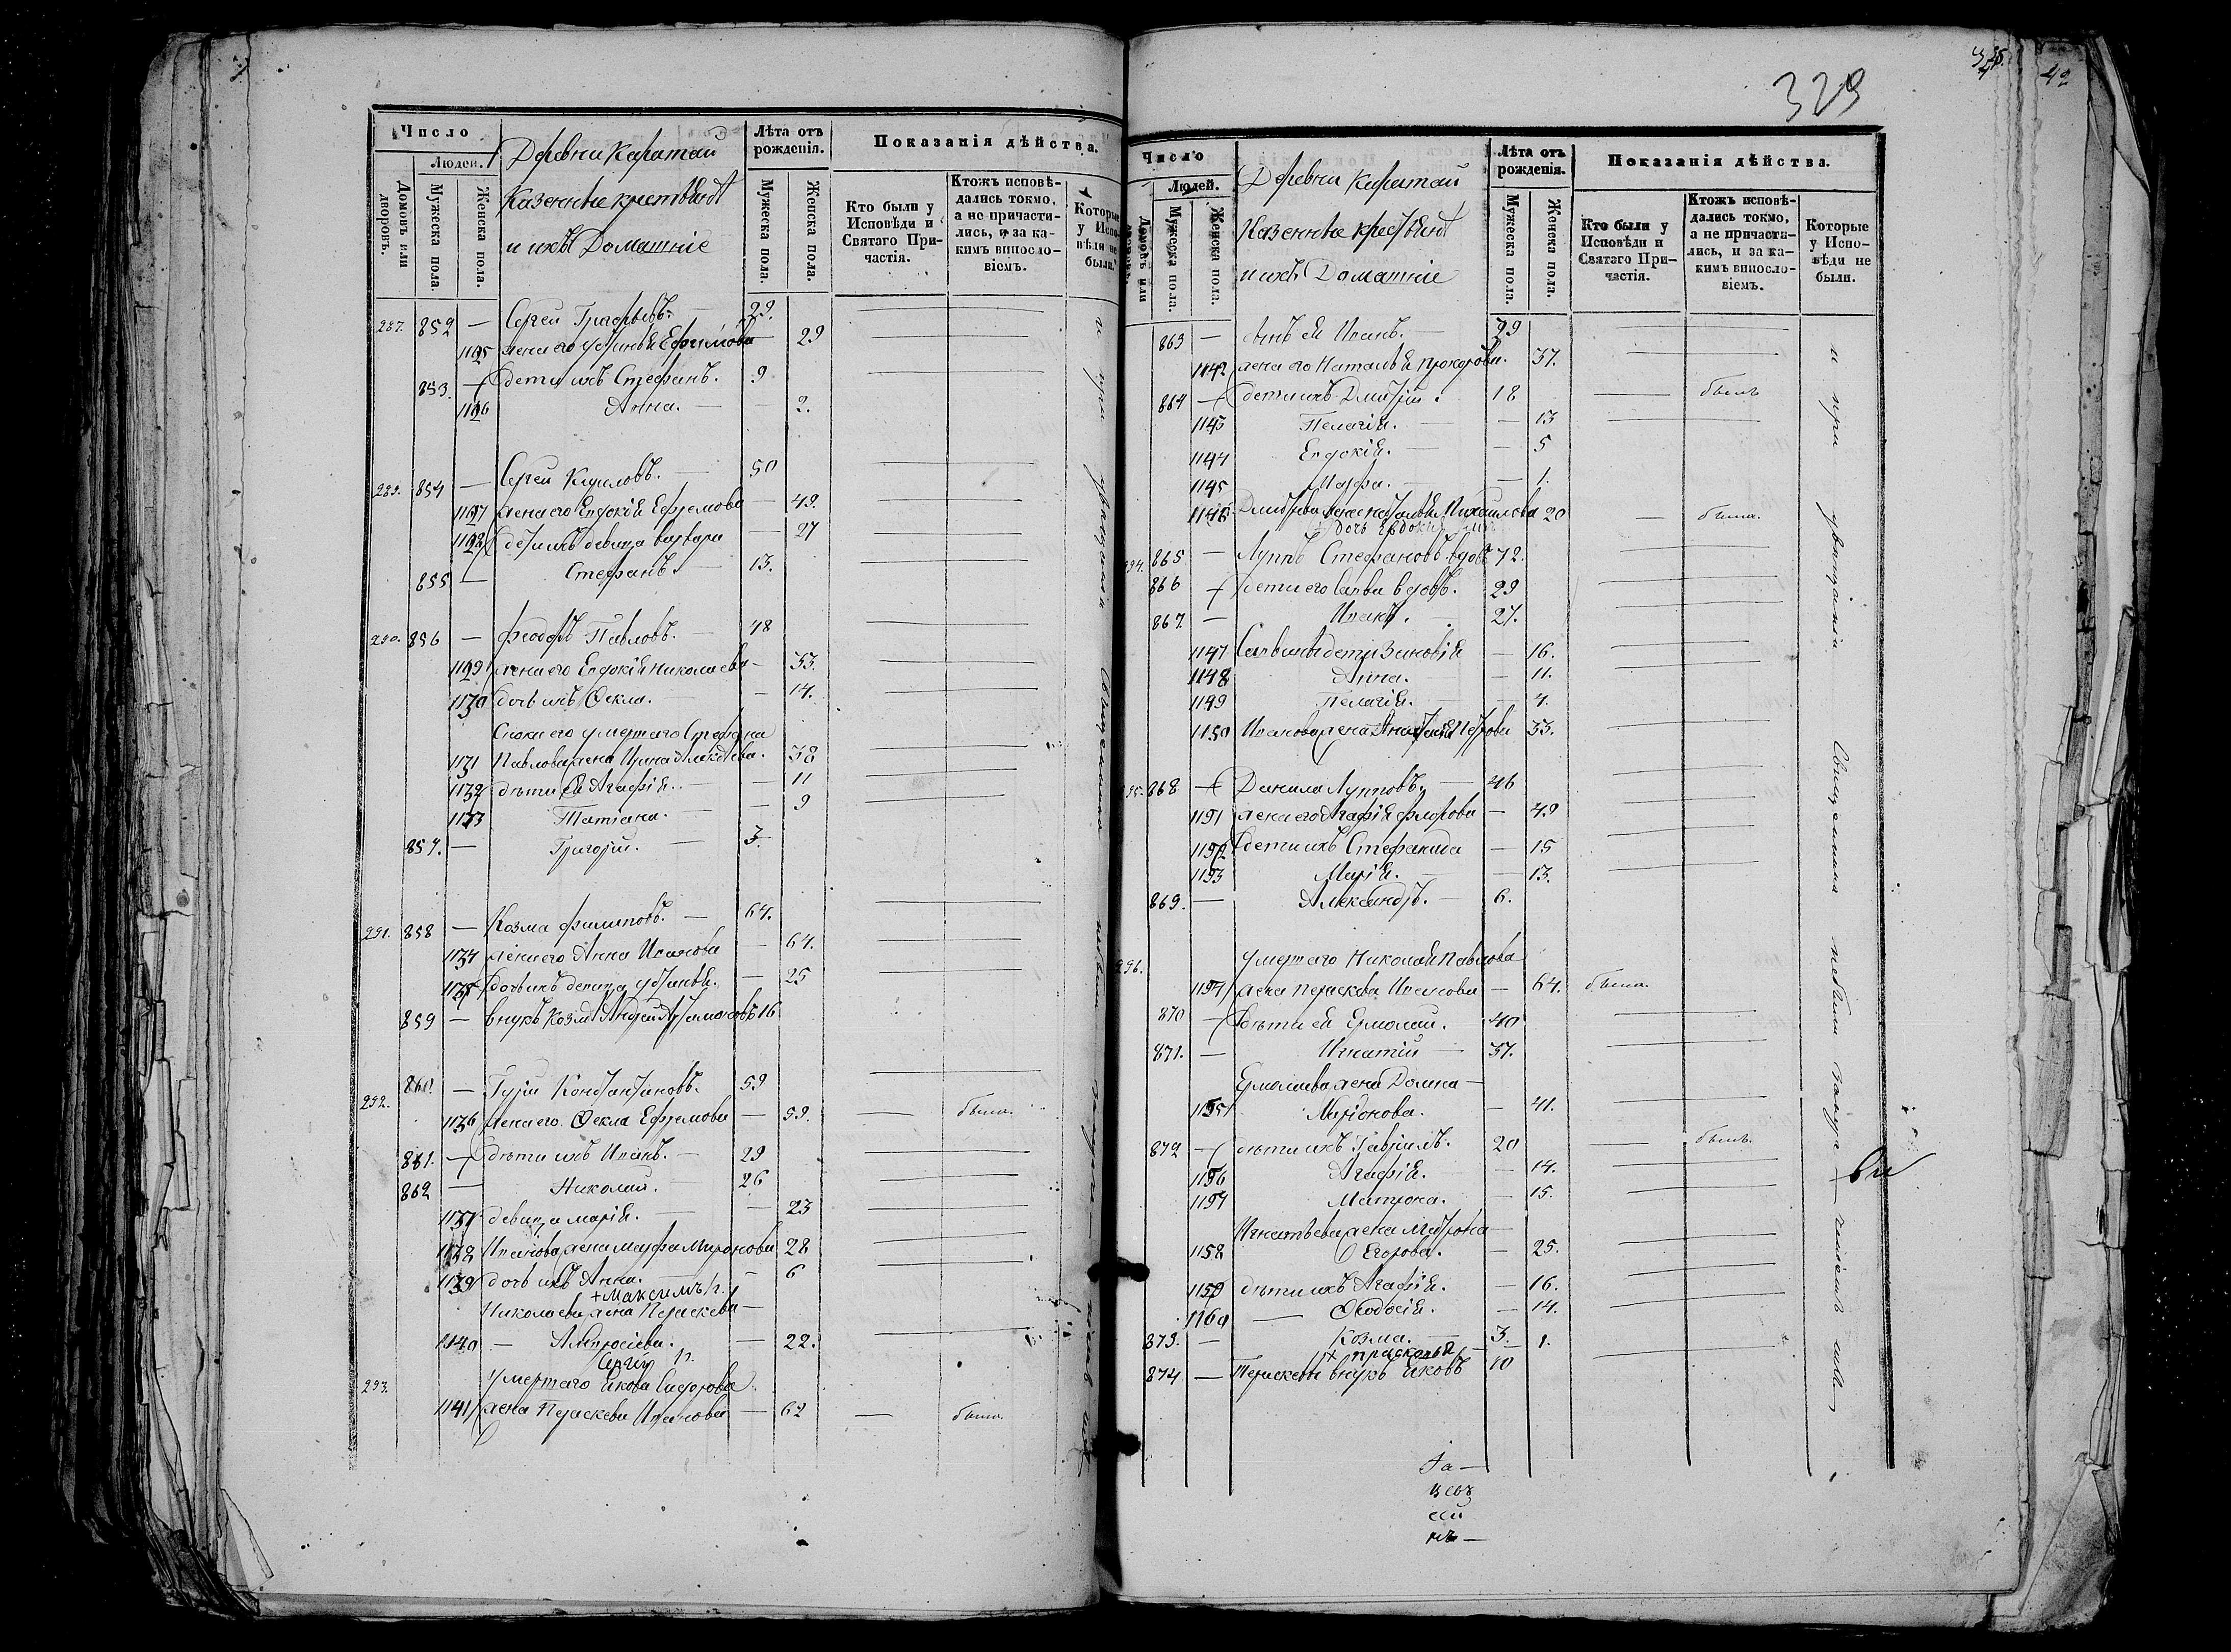 Число
Людей.
Домовъ или дворовъ.
Мужеска пола.
Женска пола.
Деревни Каратай
Казенные крестьяне
и ихъ Домашніе
Лѣта отъ рожденія.
Мужеска пола.
Женска пола.
Показанія дѣйства.
Кто были у Исповѣди и Святаго Причастія.
Ктожъ исповѣдались токмо, а не причастились, и за какимъ винословіемъ.
Которые у Исповѣди не были.
287. 852 — Сергей 29.
1125 жена его Устинья Ефимова — 29
853. — дети ихъ Стефанъ. 9
1126 Анна. — 2.
289. 854 — Сергей Кириловъ. — 50
1127 жена его Евдокія Ефремова — 49.
1128 дети ихъ девица Варвара — 27
855 — Стефанъ. — 13.
290. 856 — Феодоръ Павловъ. — 48
1129 жена его Евдокія Николаева — 53.
1130 дочь ихъ Фекла. — 14.
умершаго Стефана
1131 Павлова жена Ирина — 38
1132 дѣти ея Агафія. — 11
1133 Татіана. — 9
857. — Григорій. — 3.
291. 858 — Козма Филиповъ. — 64.
1134 жена его Анна Иванова — 64.
1135 дочь ихъ девица Устинья. — 25
859 — внукъ Козмы Андрей 16
292. 860. — Гурій Константиновъ. 59
1136 жена его Фекла Ефремова — 59. — была.
861. — дѣти ихъ Иванъ. — 29
862 — Николай. 26
1137 девица Марія. — 23
1138 Иванова жена Марфа Миронова 28
1139 дочь ихъ Анна. — 6
+ Максимъ
Николаева жена Параскева —
1140 — — 22.
Сергій
293. умершаго Якова Сидорова
1141 жена Параскева Иванова — 62 — была.
и при увѣщаніи Священника небыли
329
42
Число
Людей.
Домовъ или дворовъ.
Мужеска пола.
Женска пола.
Деревни Каратай
Казенные крестьяне
и ихъ Домашніе
Лѣта отъ рожденія.
Мужеска пола.
Женска пола.
Показанія дѣйства.
Кто были у Исповѣди и Святаго Причастія.
Ктожъ исповѣдались токмо, а не причастились, и за какимъ винословіемъ.
Которые у Исповѣди не были.
863 — сынъ ея Иванъ. — 39
1142 жена его Наталья Прохорова. 37.
864 — дети ихъ Дмитрій. 18 — былъ
1143 Пелагія. — 13
1144 Евдокія. — 5
1145 Марфа. — 1.
1146 Дмитріева жена Наталья Михайлова 20 — была.
Дочь Евдокія
294. 865 — Луппъ Стефановъ вдовъ 72.
866 — дети его Савва вдовъ. 29
867 — Иванъ. 27.
1147 Саввины дети Зиновія — 16.
1148 Анна. — 11.
1149 Пелагія. — 4.
1150 Иванова жена Анастасія Петрова 33.
295. 868 — Данила Лупповъ. — 46
1151 жена его Агафія Федорова — 49
1152 дети ихъ Стефанида — 15
1153 Марія. — 13.
869. — Александръ. — 6.
296. умершаго Николая Павлова
1154 жена Параскева Иванова — 64. была.
870 — дѣти ея Ермолай. 40
871. — Игнатій — 37.
Ермолаева жена Домна —
1155 Миронова. — 41.
872 — дѣти ихъ Гавріилъ. 20 — былъ.
1156 Агафія. — 14.
1157 Матрона. — 15.
Игнатьева жена Матрона —
1158 Егорова. — 25.
1159 дѣти ихъ Агафія. — 16.
1160 — Феодосія. — 14.
873. — Козма. — 3. 1.
+ Прасковья —
874 — Параскевы внукъ Яковъ 10
и при увѣщаніи Священника небыли